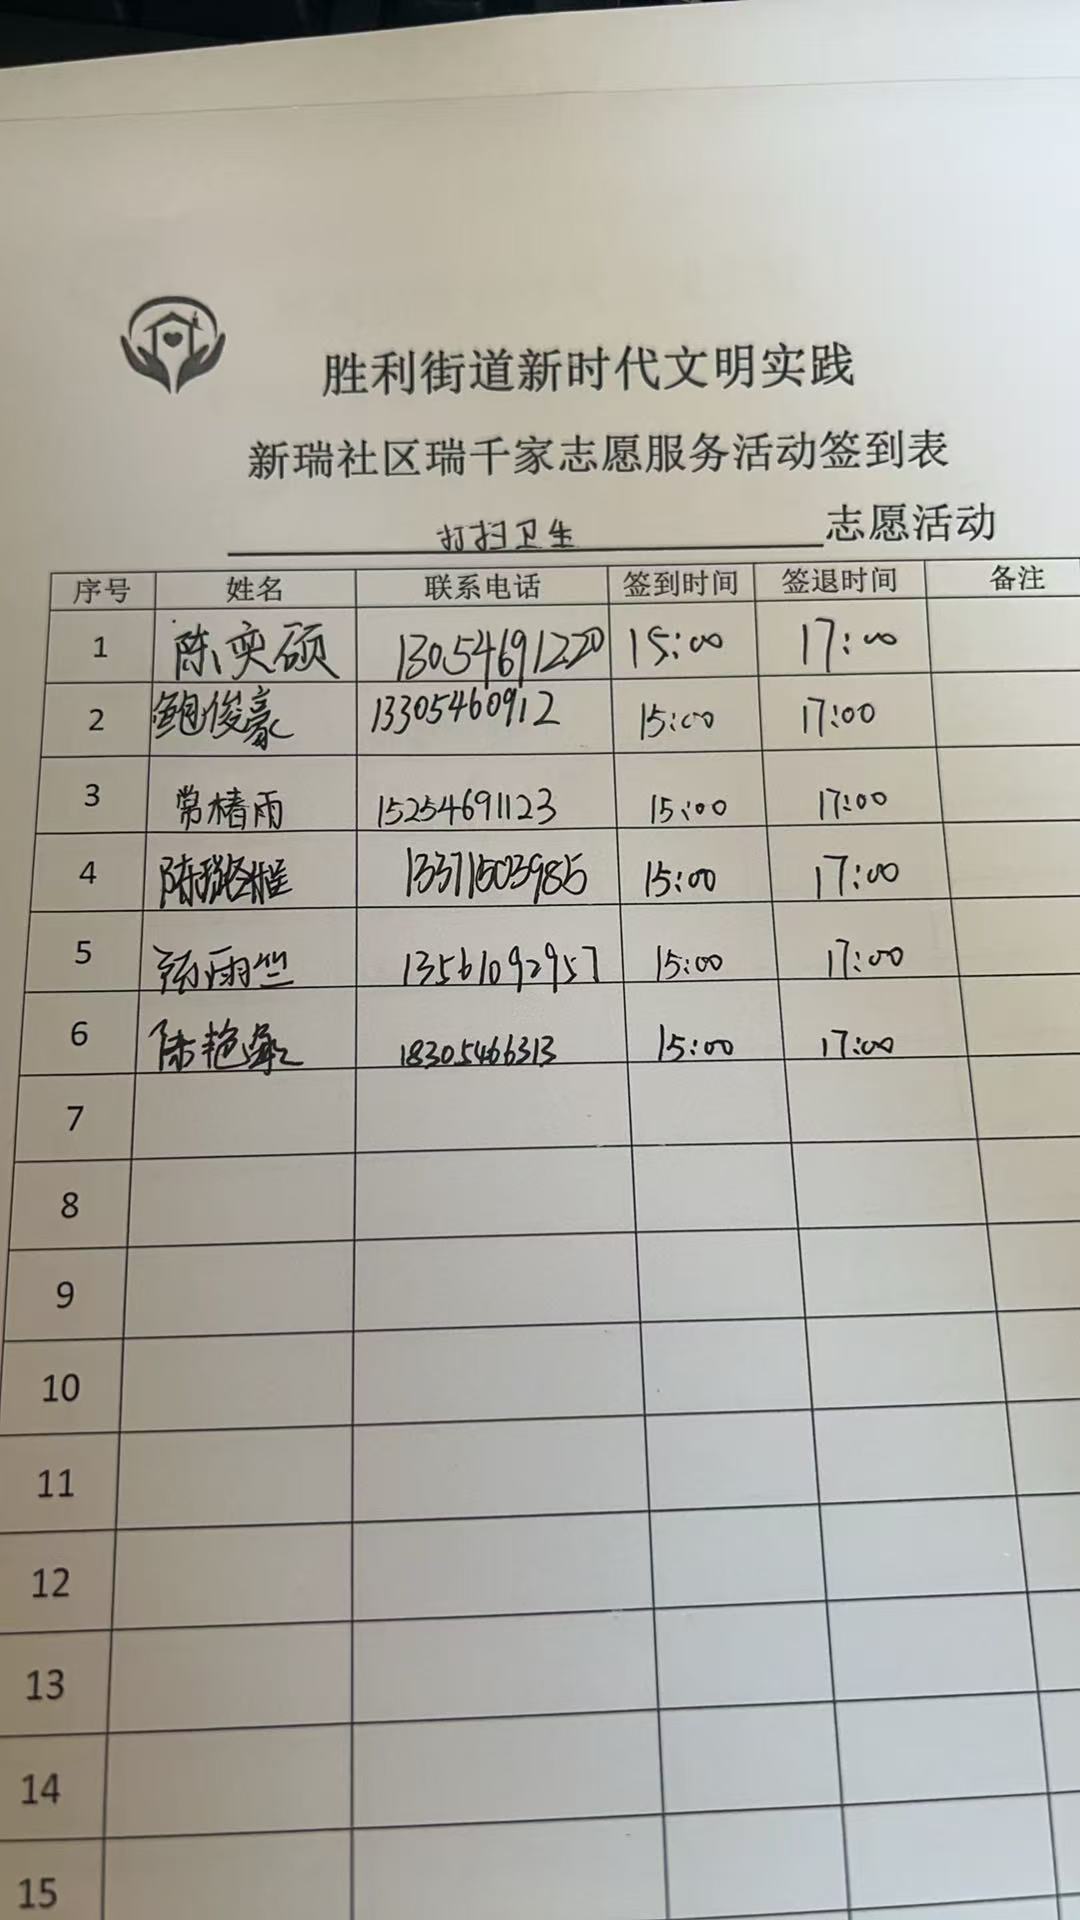 胜利街道新时代文明实践
新瑞社区瑞千家志愿服务活动签到表
打扫卫生 志愿活动
序号 姓名 联系电话 签到时间 签退时间 备注
1 陈奕硕 13054691220 15:00 17:00
2 鲍俊豪 13305460912 15:00 17:00
3 常椿雨 15254691123 15:00 17:00
4 13371503985 15:00 17:00
5 张雨竺 13561092957 15:00 17:00
6 18305466313 15:00 17:00
7
8
9
10
11
12
13
14
15